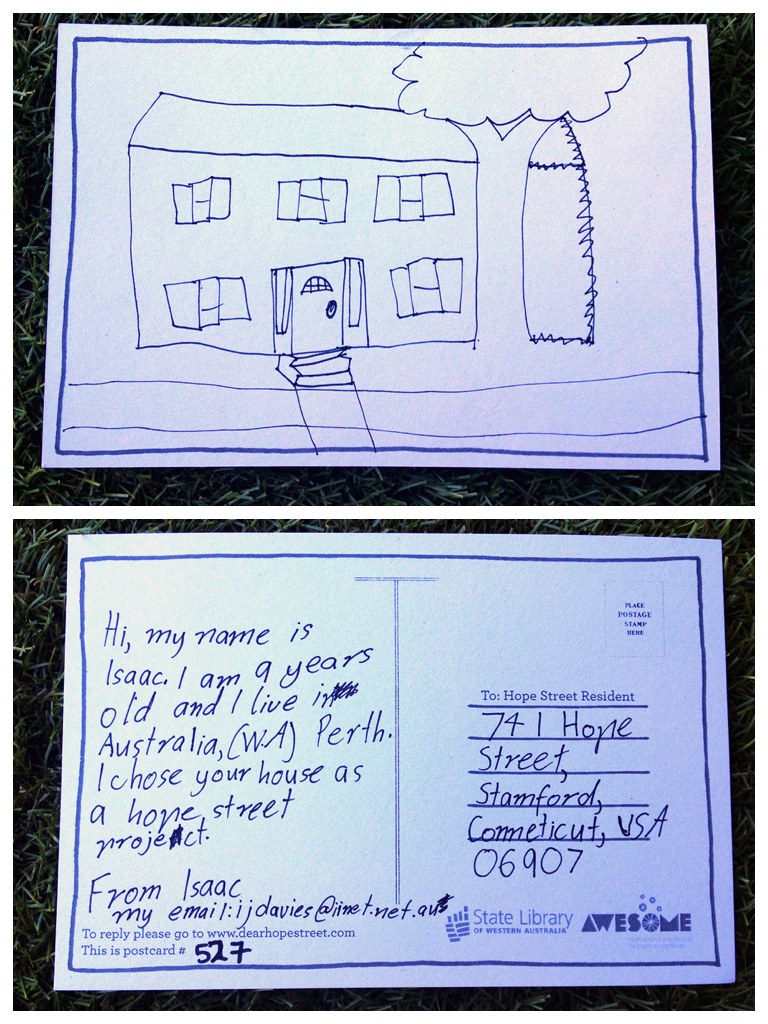 Hi, my name is
Isaac. I am 9 years
old and I live in
Australia, (WA) Perth.
I chose your house as
a hope street
project.
From Isaac
my email: ijdavies@iinet.net.au
To reply please go to www.dearhopestreet.com
This is postcard # 527
PLACE
POSTAGE
STAMP
HERE
To: Hope Street Resident
741 Hope
Street,
Stamford,
Conneticut, USA
06907
State Library
OF WESTERN AUSTRALIA
AWESOME